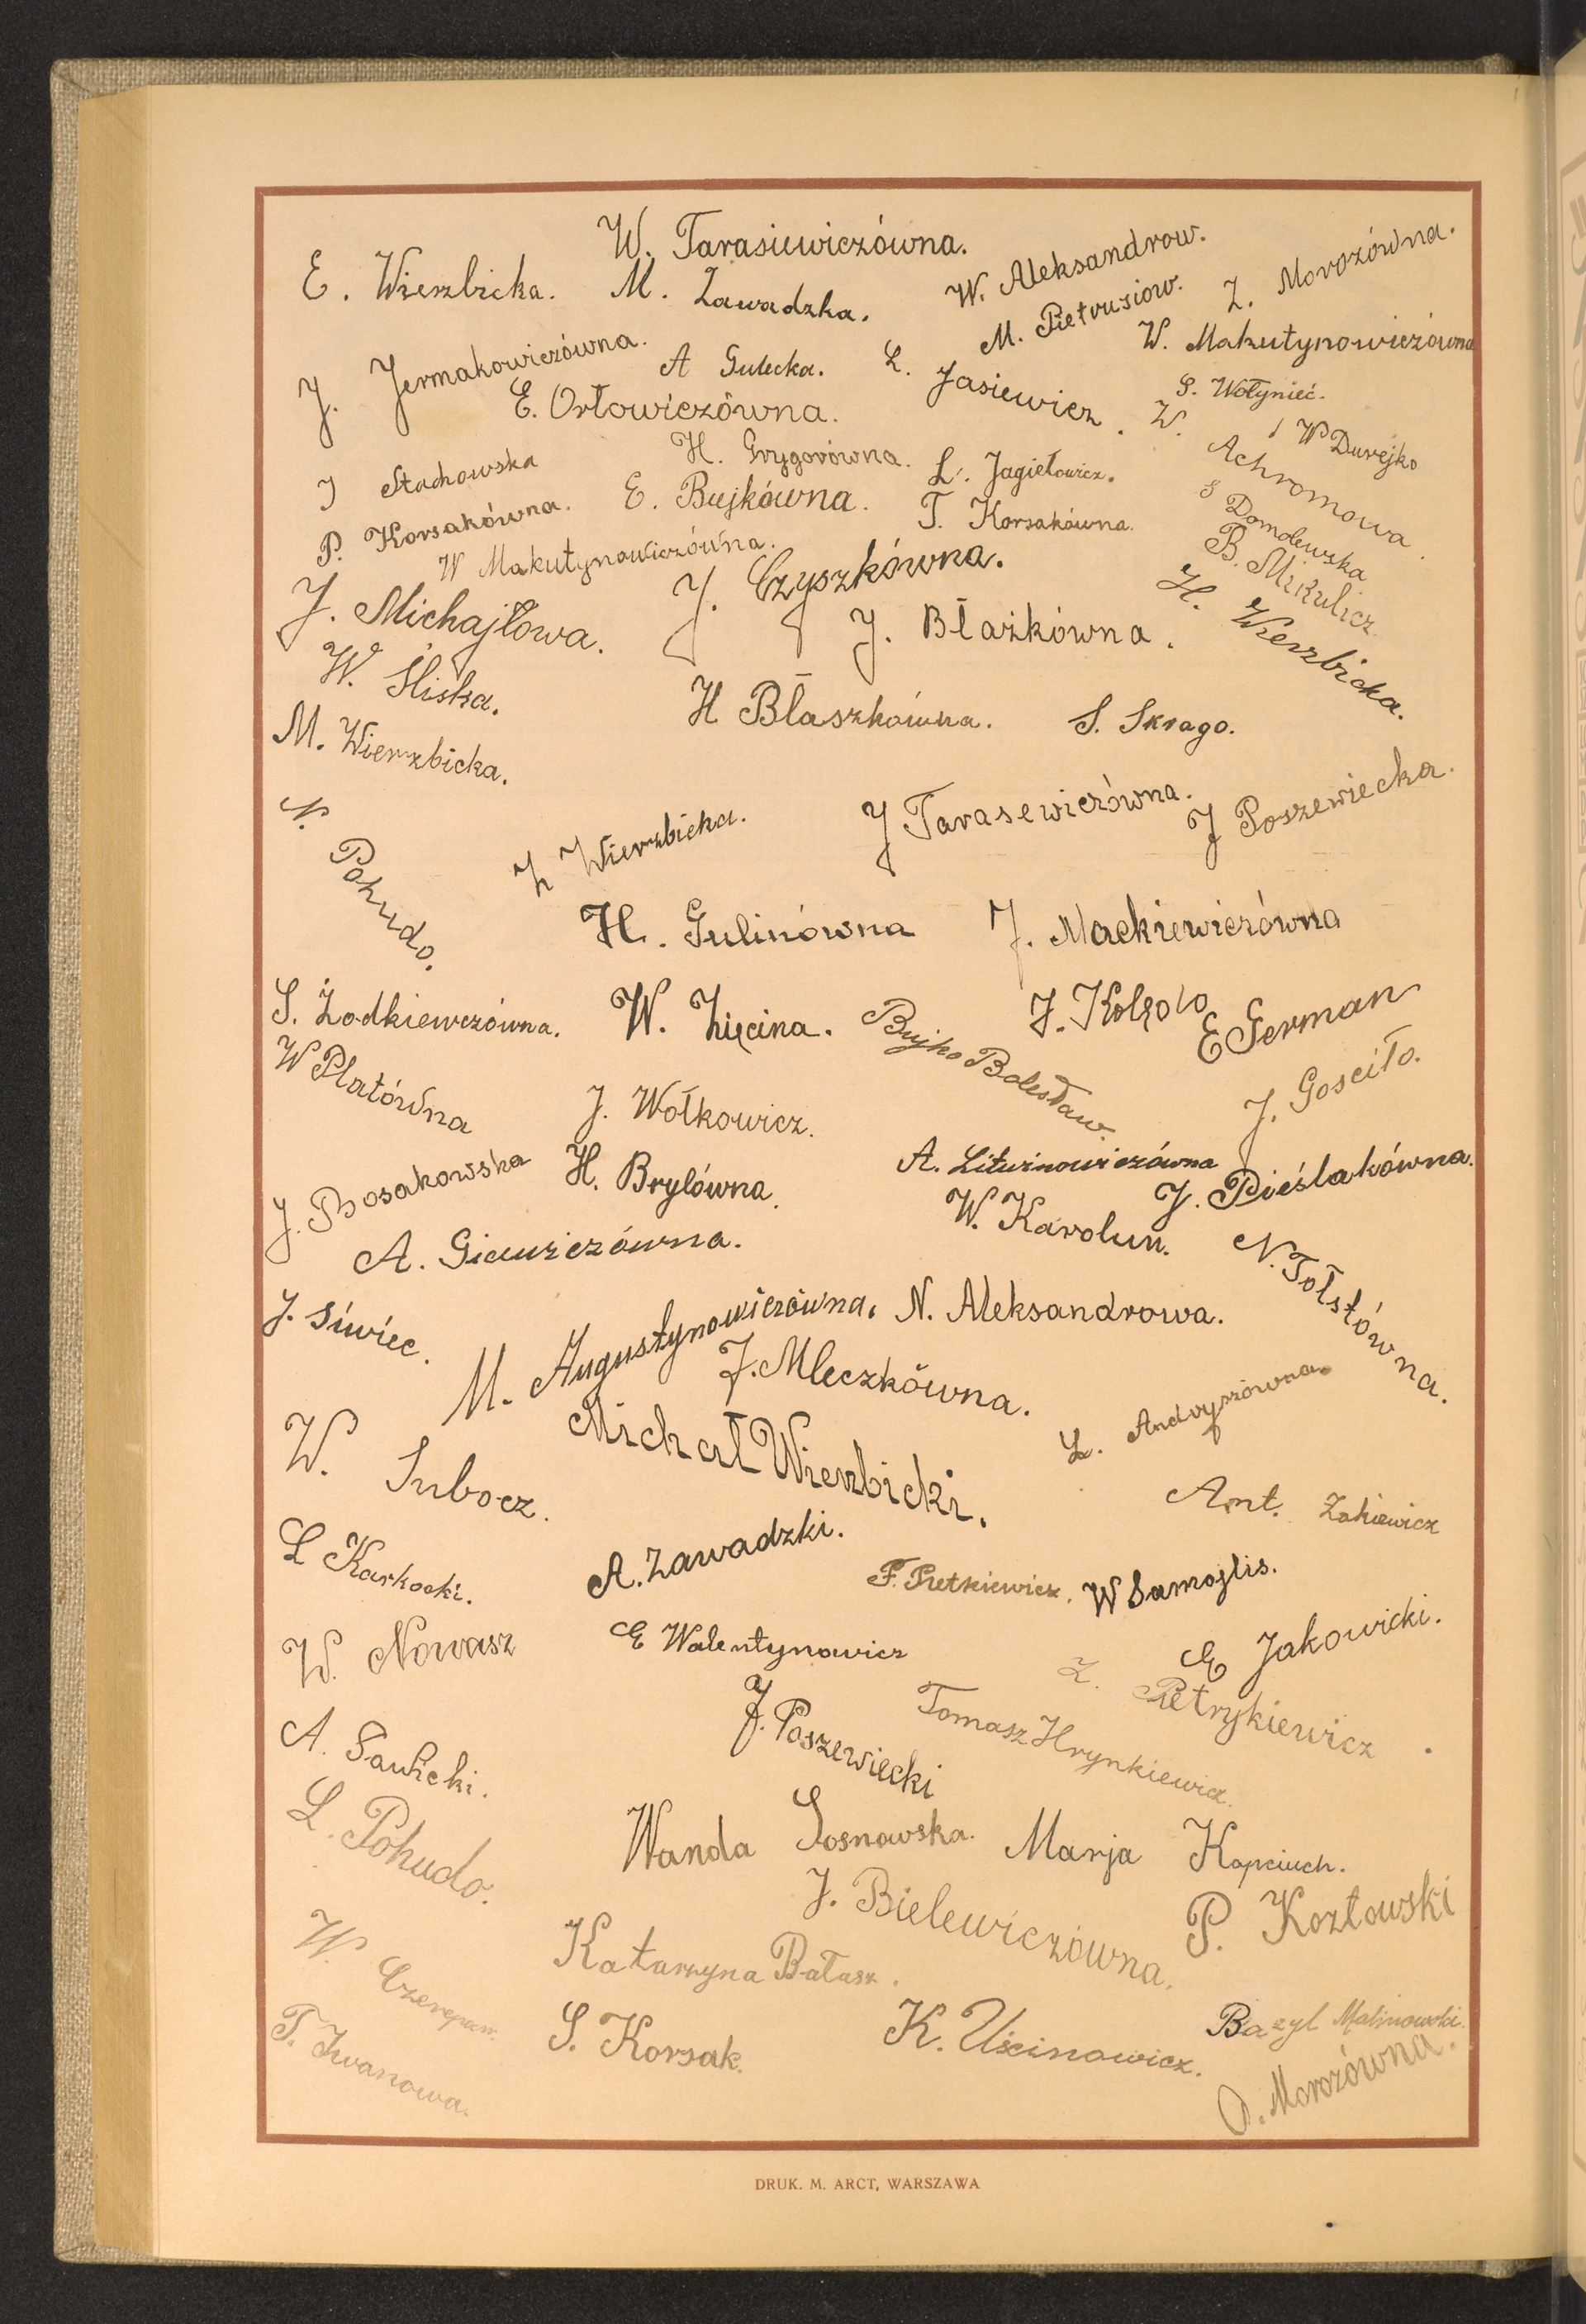 W. Tarasiewiczówna.
E. Wierzbicka. M. Zawadzka. W. Aleksandrow.
M. Pietrusiow. Z. Morozówna.
J. Jermakowiczówna. A Gulecka. L. Jasiewicz. W. Makutynowiczówna
E. Orłowiczówna. S. Wołynieć.
W. Achromowa. W Durejko
J Stachowska H. Grygorówna. L. Jagiełowicz.
P. Korsakówna. E. Bujkówna. T. Korsakówna. S Domolewska
W Makutynowiczówna. B. Mikulicz.
J. Michajłowa. J. Czyszkówna. H. Wierzbicka.
J. Błażkówna.
W. Śliska.
H Błaszkówna. S. Skrago.
M. Wierzbicka.
N. Pohudo. Z Wierzbicka. J Tarasewiczówna. J Poszewiecka.
H. Gulinówna J. Mackiewiczówna
S. Żodkiewczówna. W. Zięcina. Bujko Bolesław. J. E German
W Platówna J. Wołkowicz. J. Gosciło.
J. Bosakowska H. Brylówna. A. Litwinowiczówna J. Pieślakówna.
A. Giewiczówna. W. Karolun. N. Tołstówna.
J. Siwiec. M. Augustynowiczówna. N. Aleksandrowa.
J. Mleczkówna. L. Andryszówna.
W. Subocz. Michał Wierzbicki. Ant. Żakiewicz
L Karkocki. A. Zawadzki. F. Pietkiewicz. W Samojlis.
W. Nowasz E Walentynowicz E Jakowicki.
Z. Pietrykiewicz.
A. Sawicki. J. Poszewiecki Tomasz Hrynkiewicz.
L. Pohudo. Wanda Sosnowska. Marja Kapciuch.
J. Bielewiczówna. P. Kozłowski
W. Katarzyna Bałasz.
T. Iwanowa. S. Korsak. K. Uścinowicz. Bazyl Malinowski.
O. Morozówna.
DRUK. M. ARCT, WARSZAWA